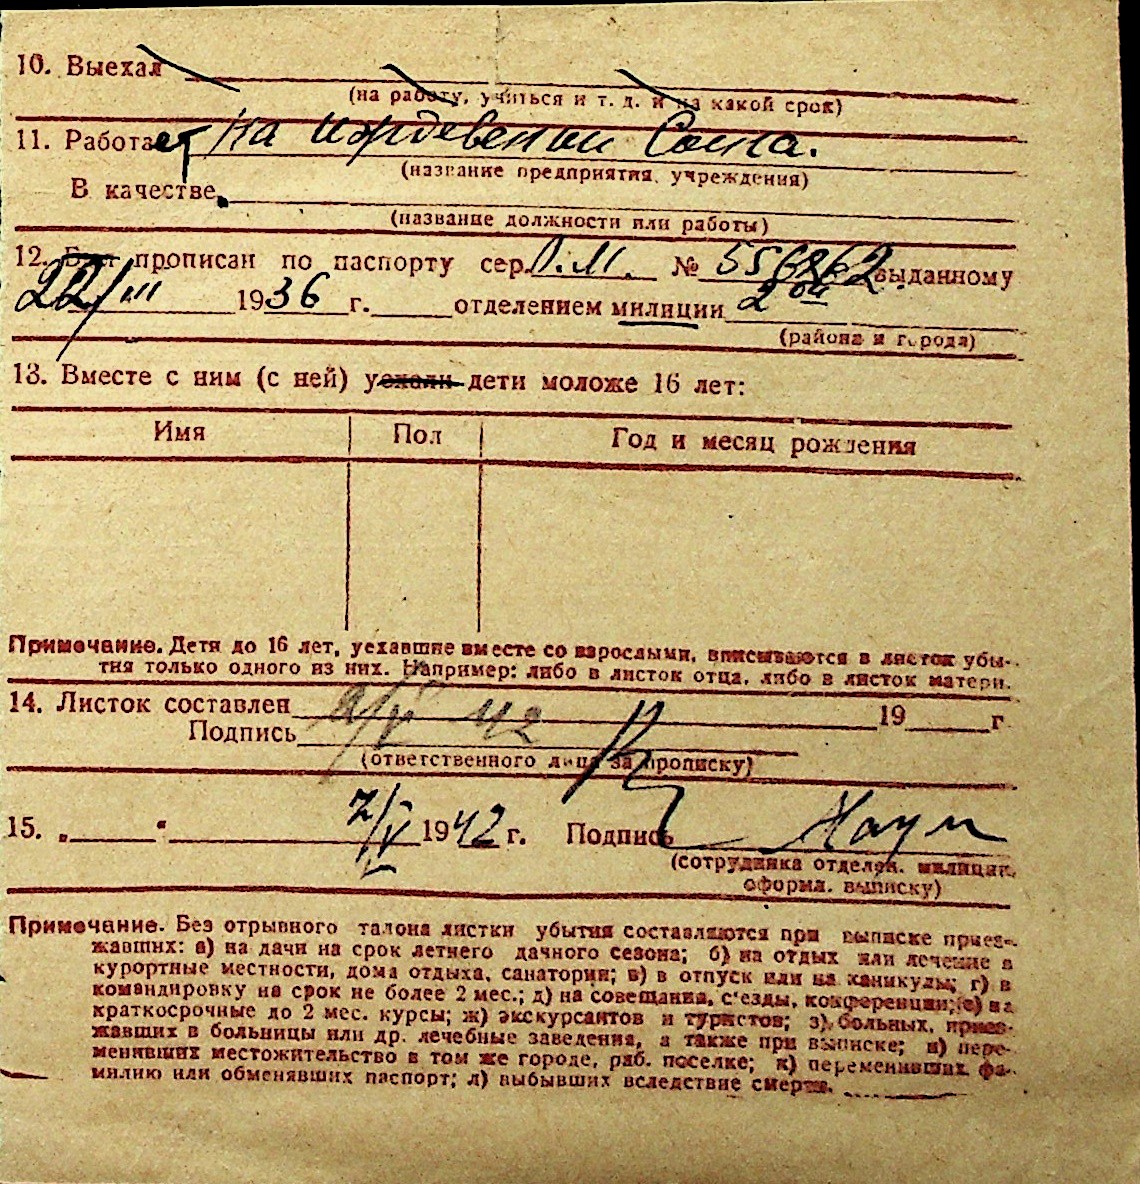 10. Выехал
(на работу, учиться и т. д. и на какой срок)
11. Работает на иждевении Сына.
(название предприятия, учреждения)
В качестве
(название должности или работы)
12. Был прописан по паспорту сер. № 556262 выданному
22/III 1936 г. отделением милиции 2 ой
(района и города)
13. Вместе с ним (с ней) уехали дети моложе 16 лет:
Имя Пол Год и месяц рождения
Примечание. Дети до 16 лет, уехавшие вместе со взрослыми, вписываются в листок убы-
тия только одного из них. Например: либо в листок отца, либо в листок матери.
14. Листок составлен 42 19 г
Подпись
(ответственного лица за прописку)
15. „ “ 7/V 1942 г. Подпись
(сотрудника отделен. милиции,
оформл. выписку)
Примечание. Без отрывного талона листки убытия составляются при выписке приез-
жавших: а) на дачи на срок летнего дачного сезона; б) на отдых или лечение в
курортные местности, дома отдыха, санатории; в) в отпуск или на каникулы; г) в
командировку на срок не более 2 мес.; д) на совещания, с'езды, конференции; е) на
краткосрочные до 2 мес. курсы; ж) экскурсантов и туристов; з) больных, приез-
жавших в больницы или др. лечебные заведения, а также при выписке; и) пере-
менивших местожительство в том же городе, раб. поселке; к) переменивших фа-
милию или обменявших паспорт; л) выбывших вследствие смерти.